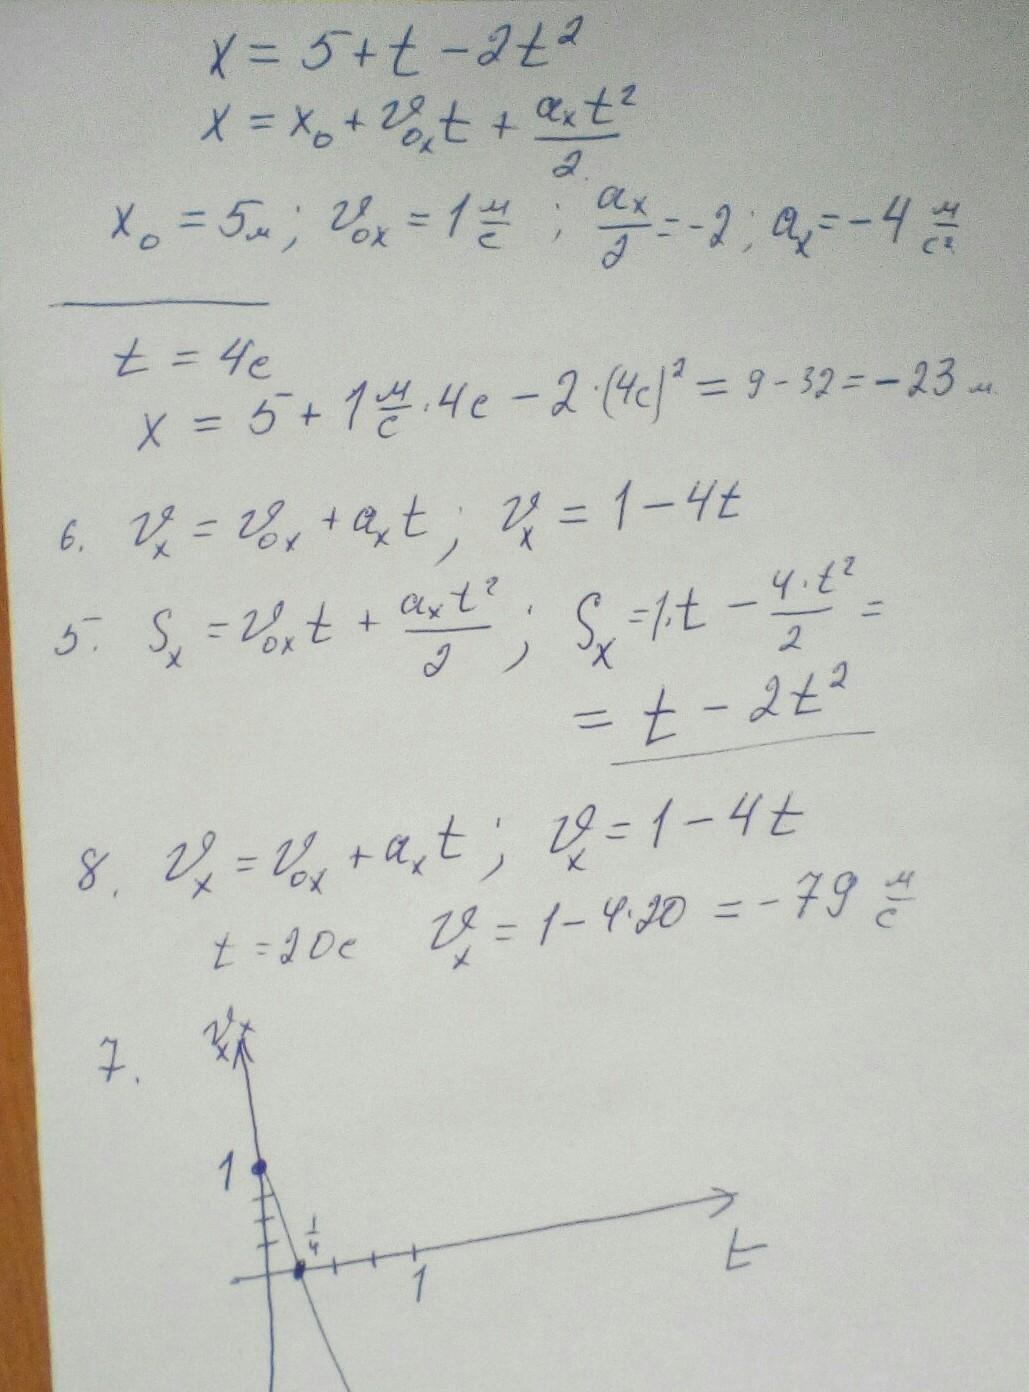 x = 5 + t - 2t²
x = x₀ + v₀ₓt + aₓt²/2
x₀ = 5м; v₀ₓ = 1 м/с ; aₓ/2 = -2; aₓ = -4 м/с²
t = 4с
x = 5 + 1 м/с · 4с - 2·(4с)² = 9 - 32 = -23 м
6. vₓ = v₀ₓ + aₓt; vₓ = 1 - 4t
5. Sₓ = v₀ₓt + aₓt²/2 ; Sₓ = 1·t - 4·t²/2 =
= t - 2t²
8. vₓ = v₀ₓ + aₓt; vₓ = 1 - 4t
t = 20с vₓ = 1 - 4·20 = -79 м/с
7. vₓ
1
1/4
1
t